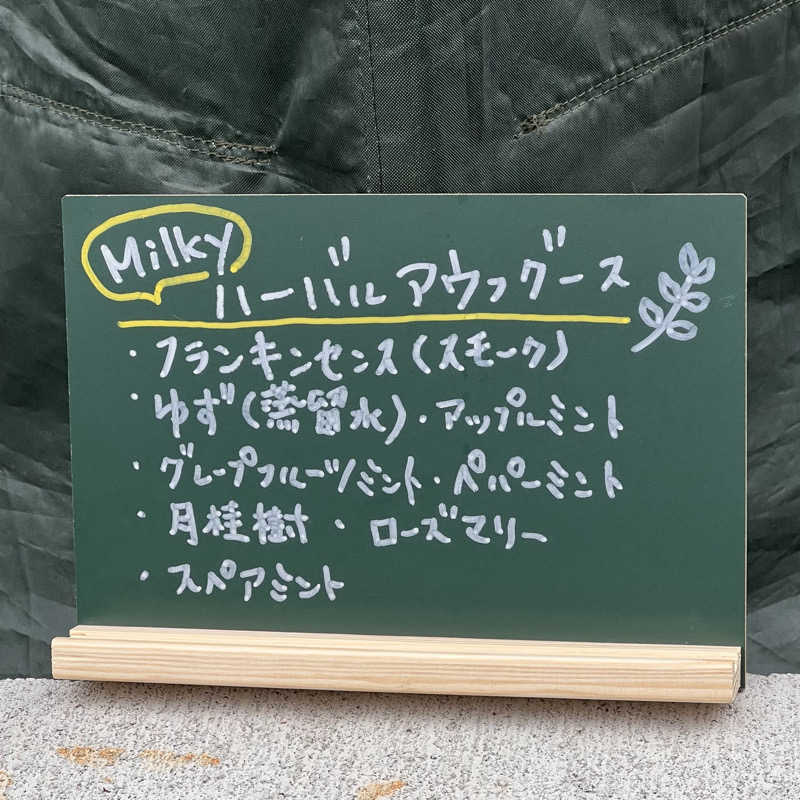 Milky
ハーバルアウフグース
・フランキンセンス(スモーク)
・ゆず(蒸留水)・アップルミント
・グレープフルーツミント・ペパーミント
・月桂樹・ローズマリー
・スペアミント